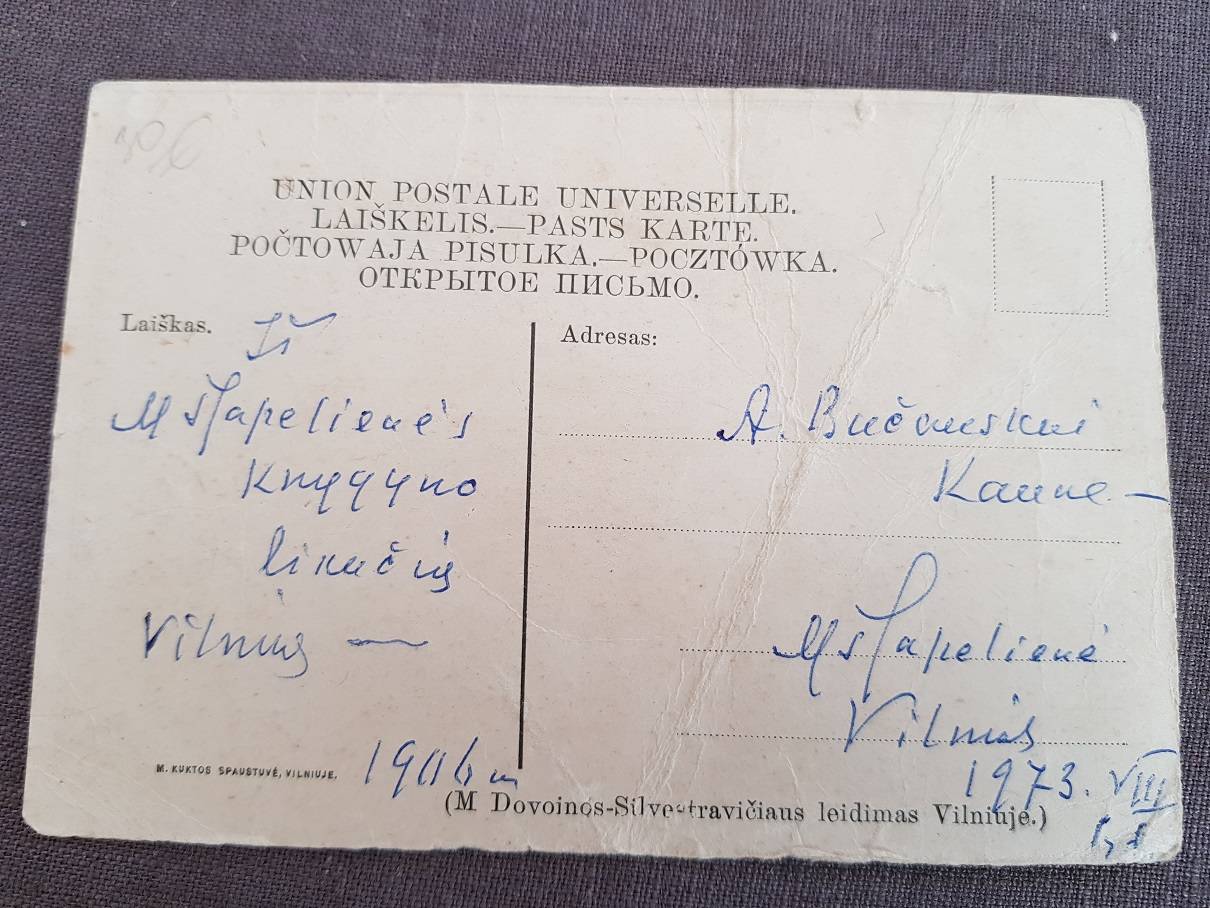 UNION POSTALE UNIVERSELLE.
LAIŠKELIS.—PASTS KARTE.
POČTOWAJA PISULKA.—POCZTÓWKA.
ОТКРЫТОЕ ПИСЬМО.
Laiškas. Iš
M Šlapelienės
Knygyno
likučių
Vilnius —
1906 m
M. KUKTOS SPAUSTUVĖ, VILNIUJE.
Adresas:
A.
Kaune —
M Šlapelienė
Vilnius
1973. VIII
(M Dovoinos-Silvestravičiaus leidimas Vilniuje.)